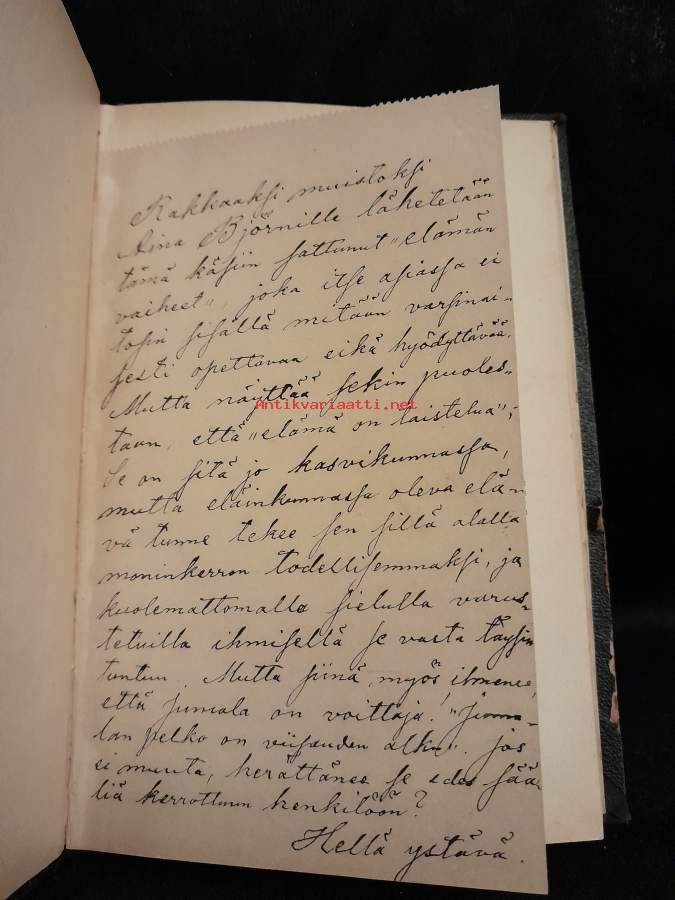 Rakkaaksi muistoksi
Aina Björnille lähetetään
tämä käsiin sattunut "elämän
vaiheet", joka itse asiassa ei
tosin sisällä mitään varsinai-
sesti opettavaa eikä hyödyttävää.
Mutta näyttää sekin puoles-
Antikvariaatti.net
taan, että "elämä on taistelua";
Se on sitä jo kasvikunnassa,
mutta eläinkunnassa oleva elä-
vä tunne tekee sen sillä alalla
moninkerron todellisemmaksi, ja
kuolemattomalla sielulla varus-
tetuilla ihmisellä se vasta täysin
tuntuu. Mutta siinä myös ilmenee,
että Jumala on voittaja! "Juma-
lan pelko on viisauden alku". Jos
ei muuta, herättänee se edes sää-
liä kerrottuun henkilöön?
Hellä ystävä.